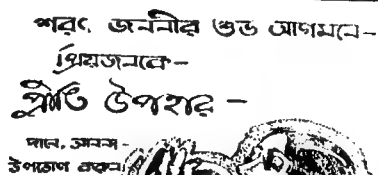 শরৎ জননীর শুভ আগমনে-
প্রিয়জনকে-
প্রীতি উপহার-
গানে, আনন্দ-
উপভোগ করুন